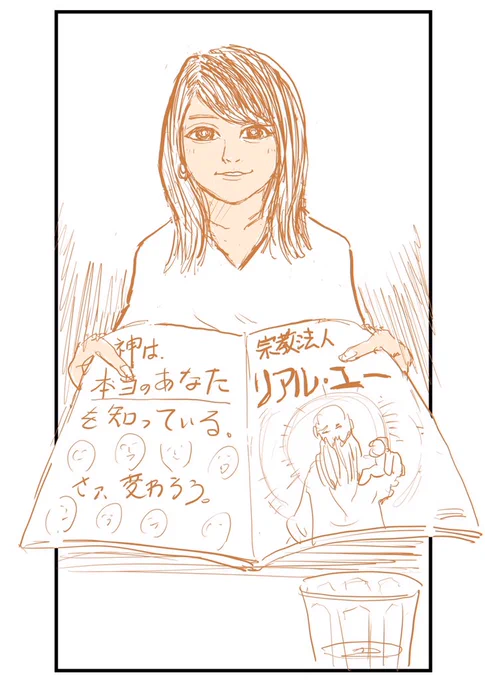 神は、
本当のあなた
を知っている。
さァ、変わろう。
宗教法人
リアル・ユー